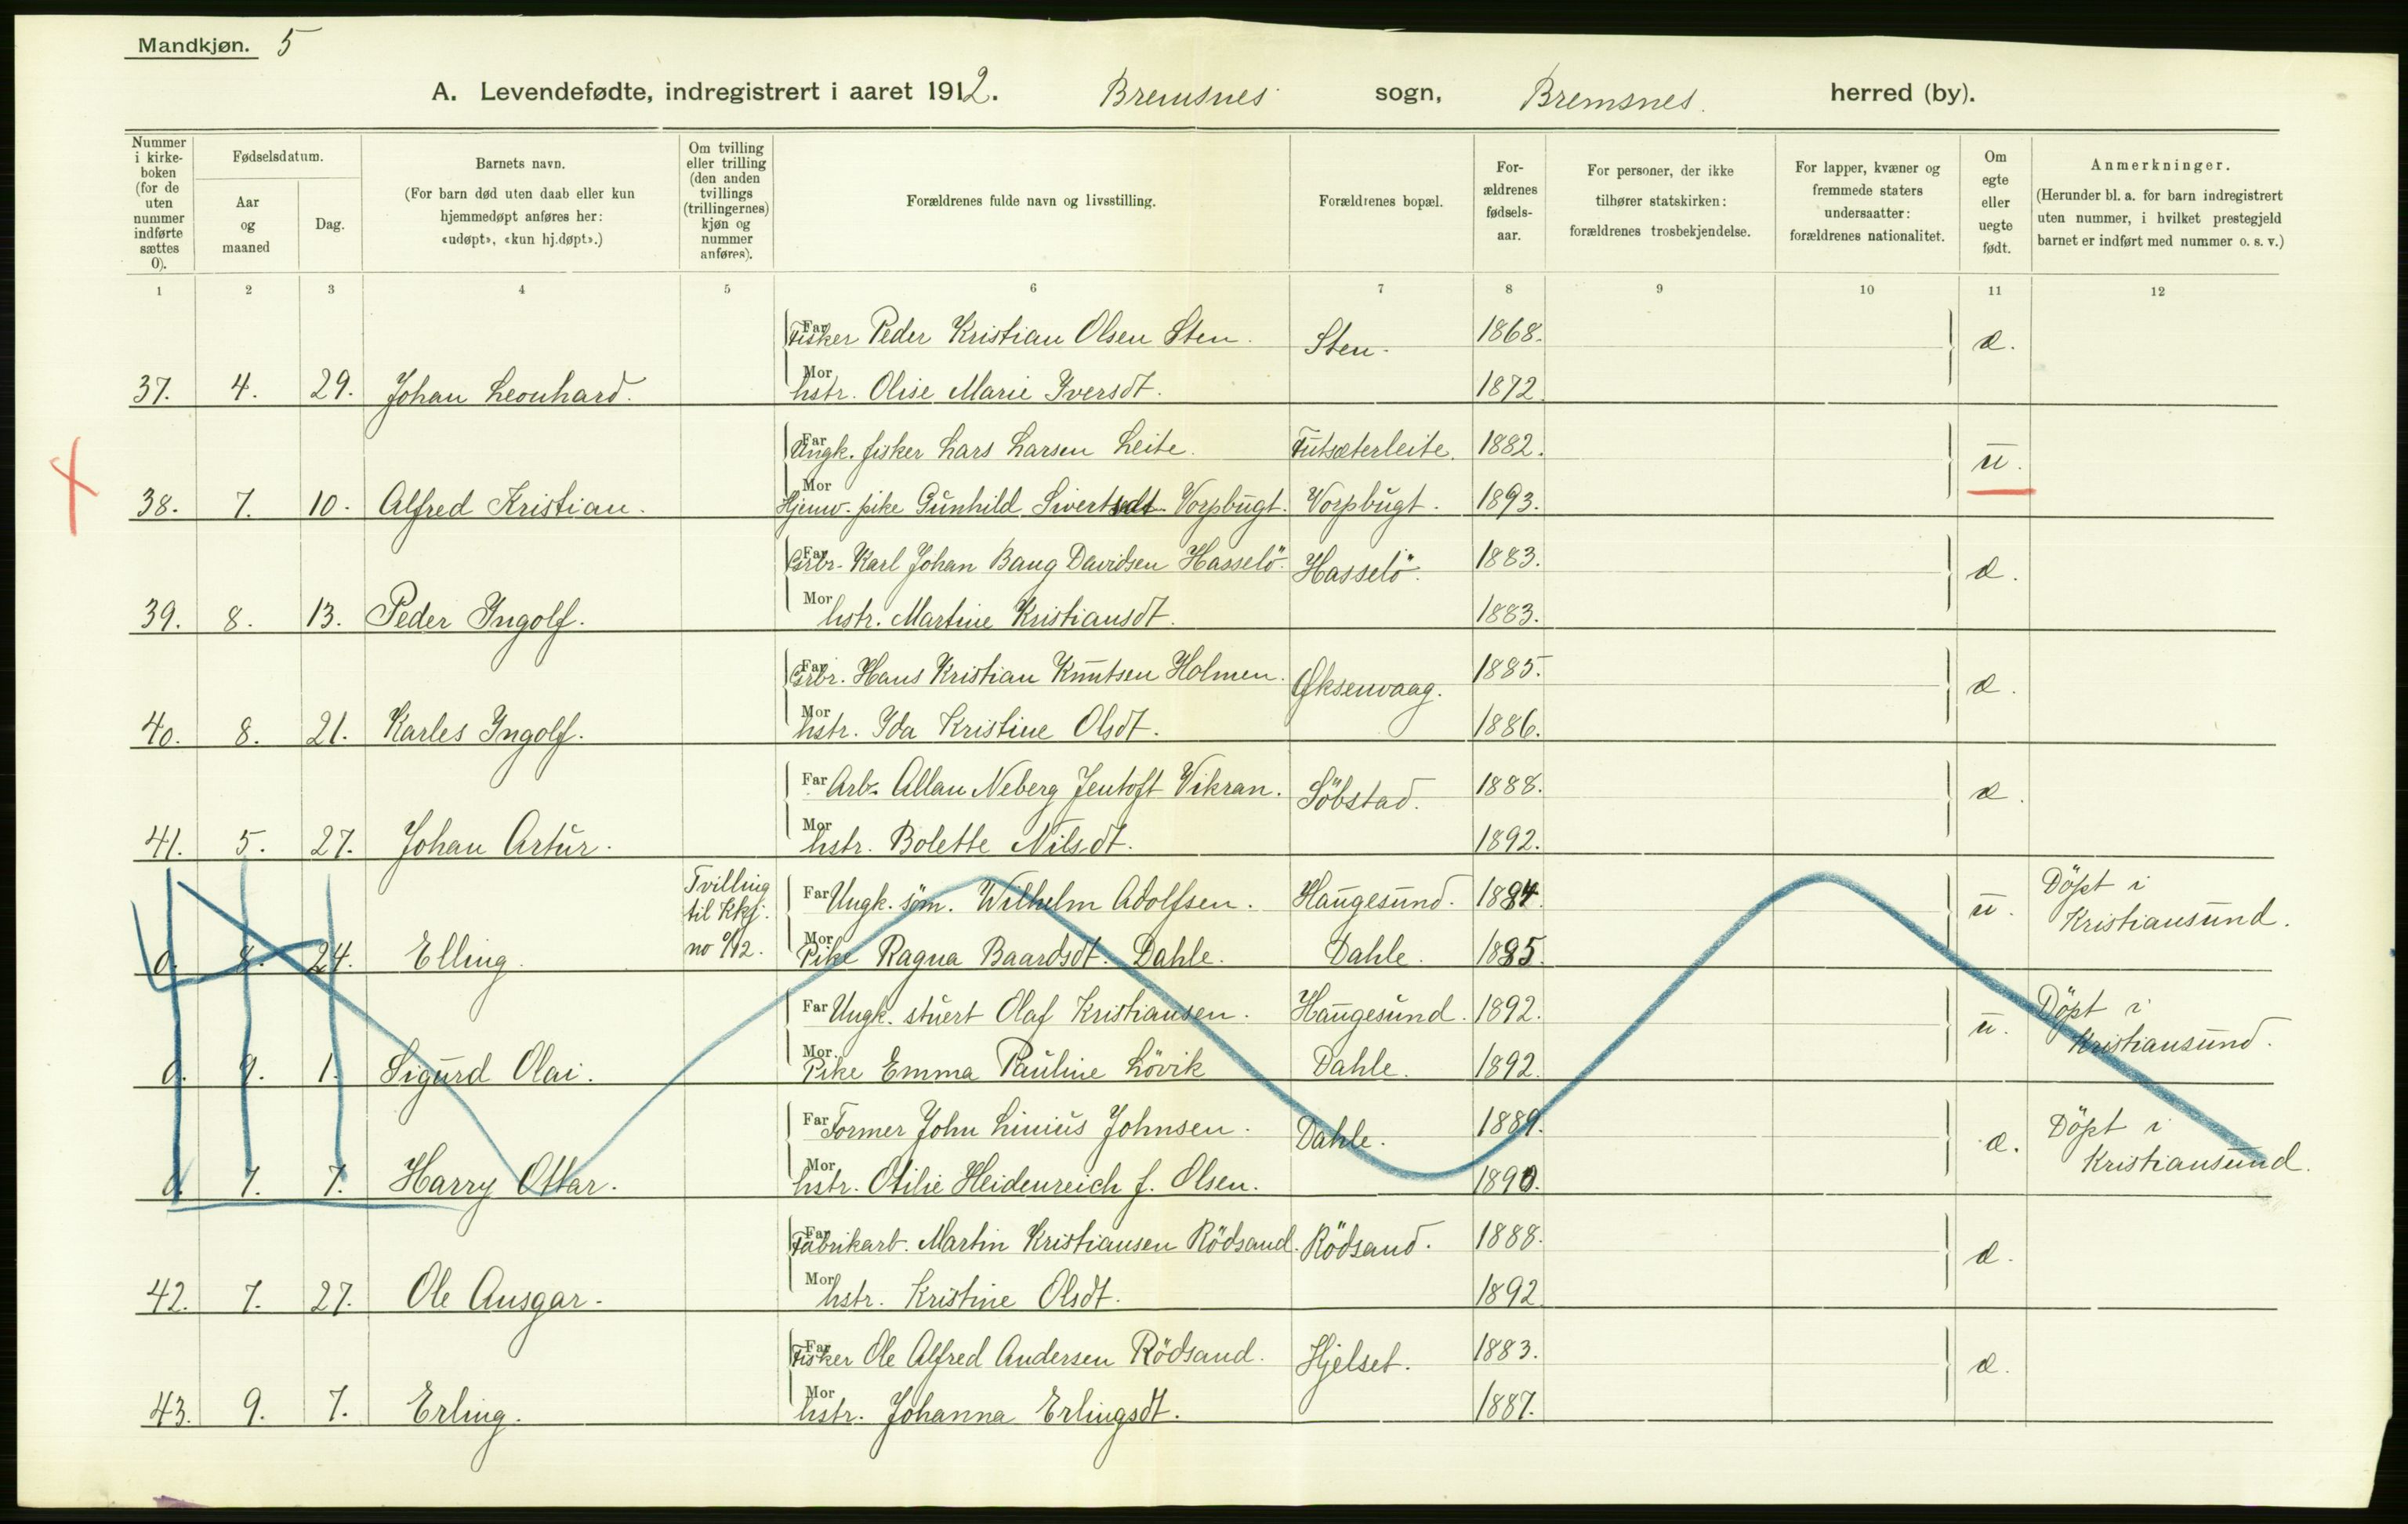 Mandkjøn. 5
A. Levendefødte, indregistrert i aaret 1912. Bremsnes sogn, Bremsnes. herred (by).
Nummer i kirkeboken (for de uten nummer indførte sættes 0).
Fødselsdatum.
Aar og maaned
Dag.
Barnets navn.
(For barn død uten daab eller kun hjemmedøpt anføres her: «udøpt», «kun hj.døpt».)
Om tvilling eller trilling (den anden tvillings (trillingernes) kjøn og nummer anføres).
Forældrenes fulde navn og livsstilling.
Forældrenes bopæl.
Forældrenes fødselsaar.
For personer, der ikke tilhører statskirken: forældrenes trosbekjendelse.
For lapper, kvæner og fremmede staters undersaatter: forældrenes nationalitet.
Om egte eller uegte født.
Anmerkninger.
(Herunder bl. a. for barn indregistrert uten nummer, i hvilket prestegjeld barnet er indført med nummer o. s. v.)
1 2 3 4 5 6 7 8 9 10 11 12
Far Fisker Peder Kristian Olsen Sten. Sten. 1868. æ.
37. 4. 29. Johan Leonhard. Mor hstr. Olise Marie Iversdt. 1872.
Far Ungk. fisker Lars Larsen Leite. Futsæterleite. 1882. u.
38. 7. 10. Alfred Kristian. Mor Hjemv. pike Gunhild Sivertsdt. Vorpbugt. Vorpbugt. 1893.
Far Grbr. Karl Johan Baug Davidsen Hasselö. Hasselö. 1883. æ.
39. 8. 13. Peder Ingolf. Mor hstr. Martine Kristiansdt. 1883.
Far Grbr. Hans Kristian Knutsen Holmen. Øksenvaag. 1885. æ.
40. 8. 21. Karles Ingolf. Mor hstr. Ida Kristine Olsdt. 1886.
Far Arb. Allan Neberg Jentoft Vikran. Söbstad. 1888. æ.
41. 5. 27. Johan Artur. Mor hstr. Bolette Nilsdt. 1892.
Tvilling til Kkj. no 0/12. Far Ungk. søm. Wilhelm Adolfsen. Haugesund. 1884. u. Döpt i Kristiansund.
0. 8. 24. Elling. Mor Pike Ragna Baardsdt. Dahle. Dahle. 1885.
Far Ungk. stuert Olaf Kristiansen. Haugesund. 1892. u. Döpt i Kristiansund.
0. 9. 1. Sigurd Olai. Mor Pike Emma Pauline Lövik Dahle. 1892.
Far Former John Linius Johnsen. Dahle. 1889. æ. Döpt i Kristiansund.
0. 7. 7. Harry Ottar. Mor hstr. Otilie Heidenreich f. Olsen. 1890.
Far Fabrikarb. Martin Kristiansen Rödsand. Rödsand. 1888. æ.
42. 7. 27. Ole Ansgar. Mor hstr. Kristine Olsdt. 1892.
Far Fisker Ole Alfred Andersen Rödsand. Hjelset. 1883. æ.
43. 9. 7. Erling. Mor hstr. Johanna Erlingsdt. 1887.